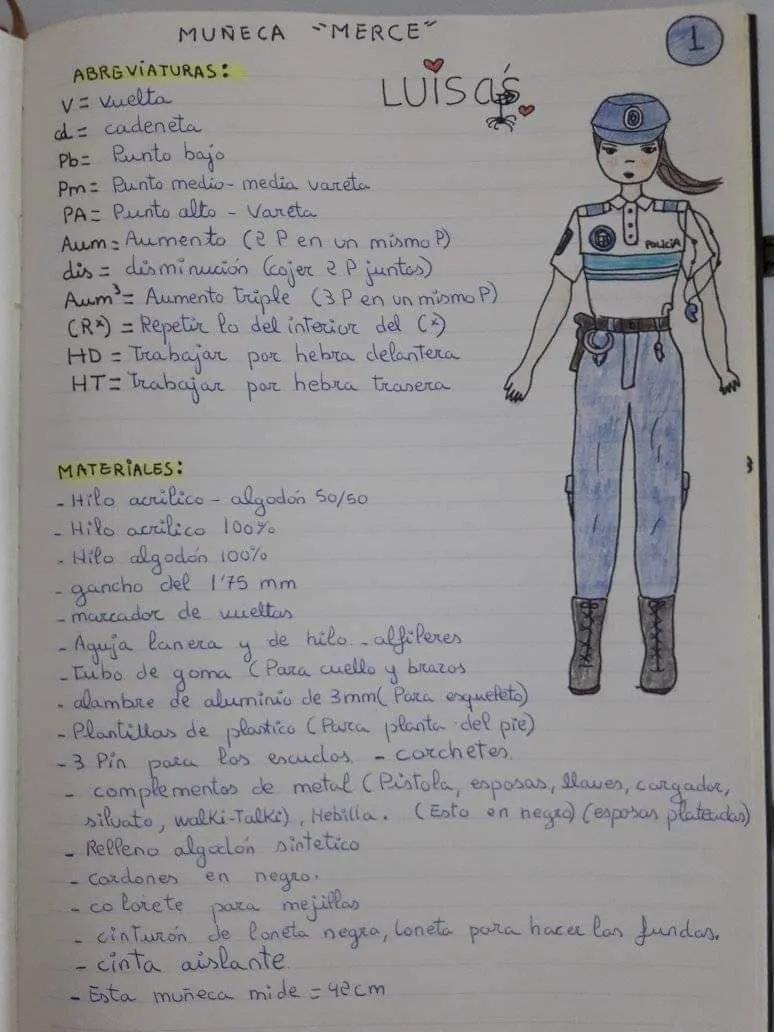 MUÑECA "MERCE"
1
ABREVIATURAS:
LUISA'S
V = Vuelta
cd = cadeneta
Pb = Punto bajo
Pm = Punto medio - media vareta
PA = Punto alto - Vareta
Aum = Aumento (2 P en un mismo P)
dis = disminución (cojer 2 P juntos)
Aum³ = Aumento triple (3 P en un mismo P)
(Rˣ) = Repetir lo del interior del (ˣ)
HD = Trabajar por hebra delantera
HT = Trabajar por hebra trasera
POLICIA
MATERIALES:
- Hilo acrilico - algodón 50/50
- Hilo acrilico 100%
- Hilo algodón 100%
- gancho del 1'75 mm
- marcador de vueltas
- Aguja lanera y de hilo. - alfileres
- Tubo de goma (Para cuello y brazos
- alambre de aluminio de 3mm (Para esqueleto)
- Plantillas de plastico (Para planta del pie)
- 3 Pin para los escudos. - corchetes.
- complementos de metal (Pistola, esposas, llaves, cargador,
silvato, walki-Talki), Hebilla. (Esto en negro) (esposas plateadas)
- Relleno algodón sintetico
- Cordones en negro.
- colorete para mejillas
- cinturón de loneta negra, loneta para hacer las fundas.
- cinta aislante
- Esta muñeca mide = 42cm